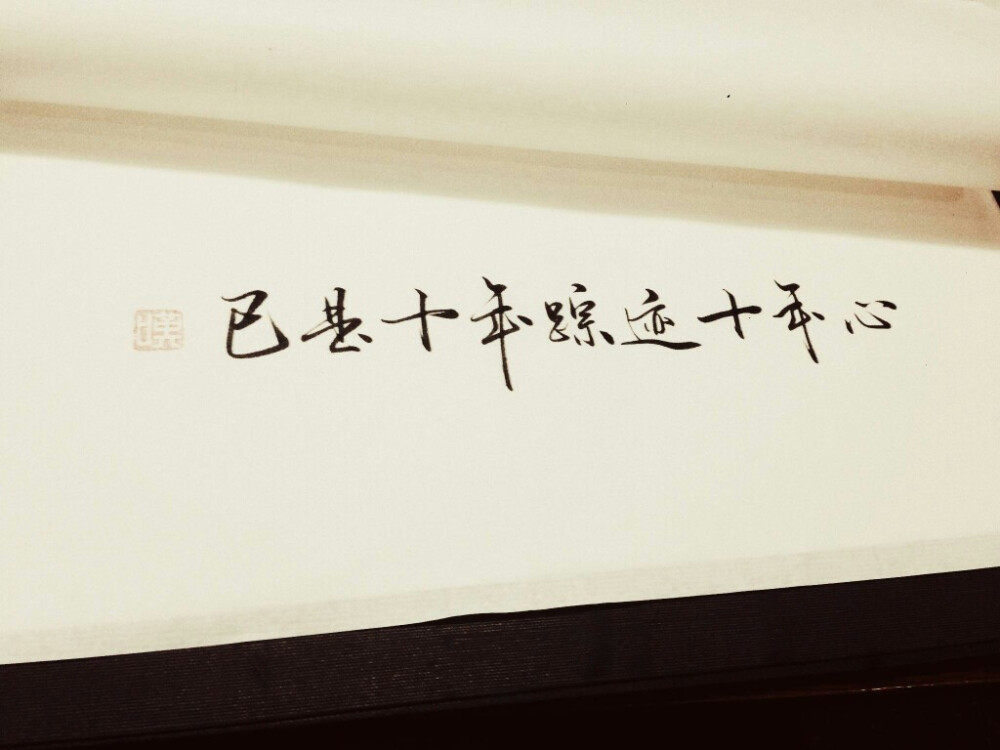 已是十年踪迹十年心